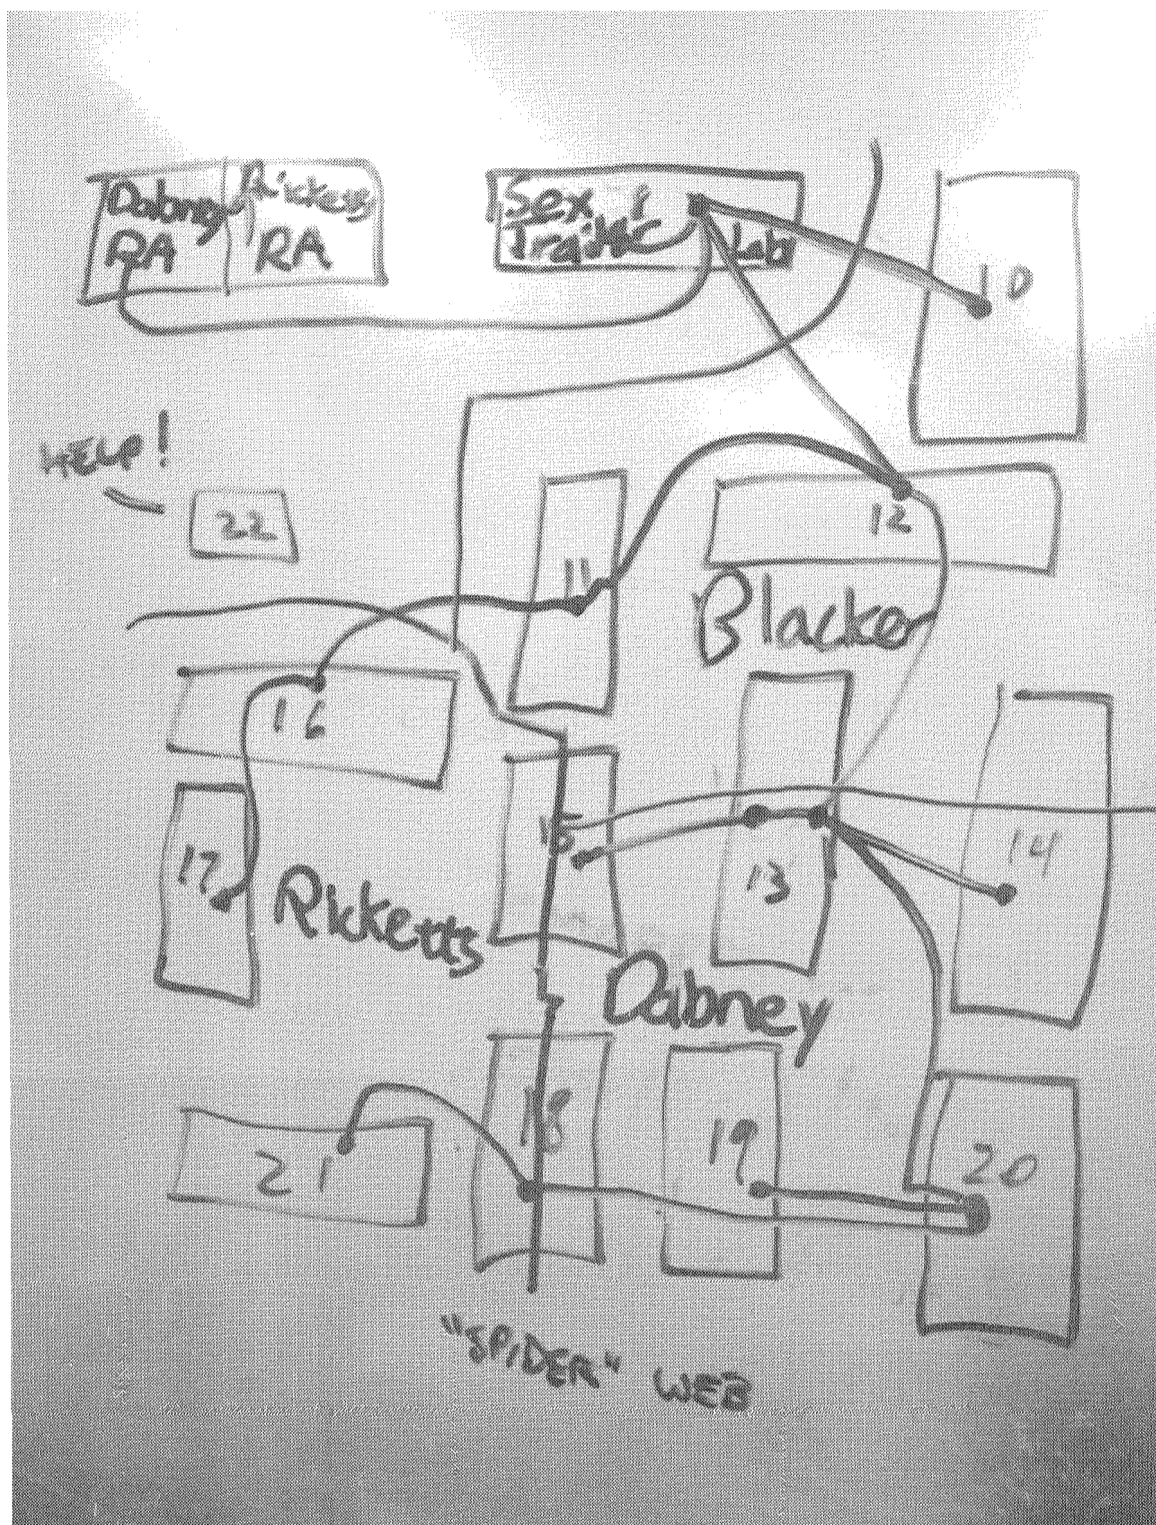 Dabney
RA
Ricketts
RA
Sex &
Traffic Lab
10
HELP!
22
11
12
Blacker
16
17
Ricketts
15
13
14
Dabney
18
19
20
21
"SPIDER" WEB